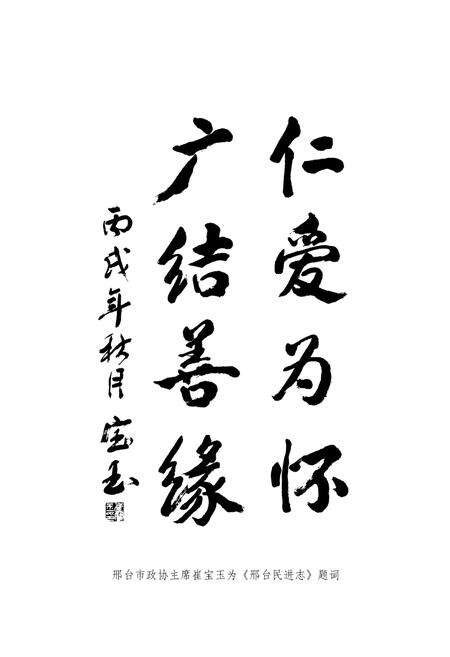 仁爱为怀
广结善缘
丙戌年秋月 宝玉
邢台市政协主席崔宝玉为《邢台民进志》题词